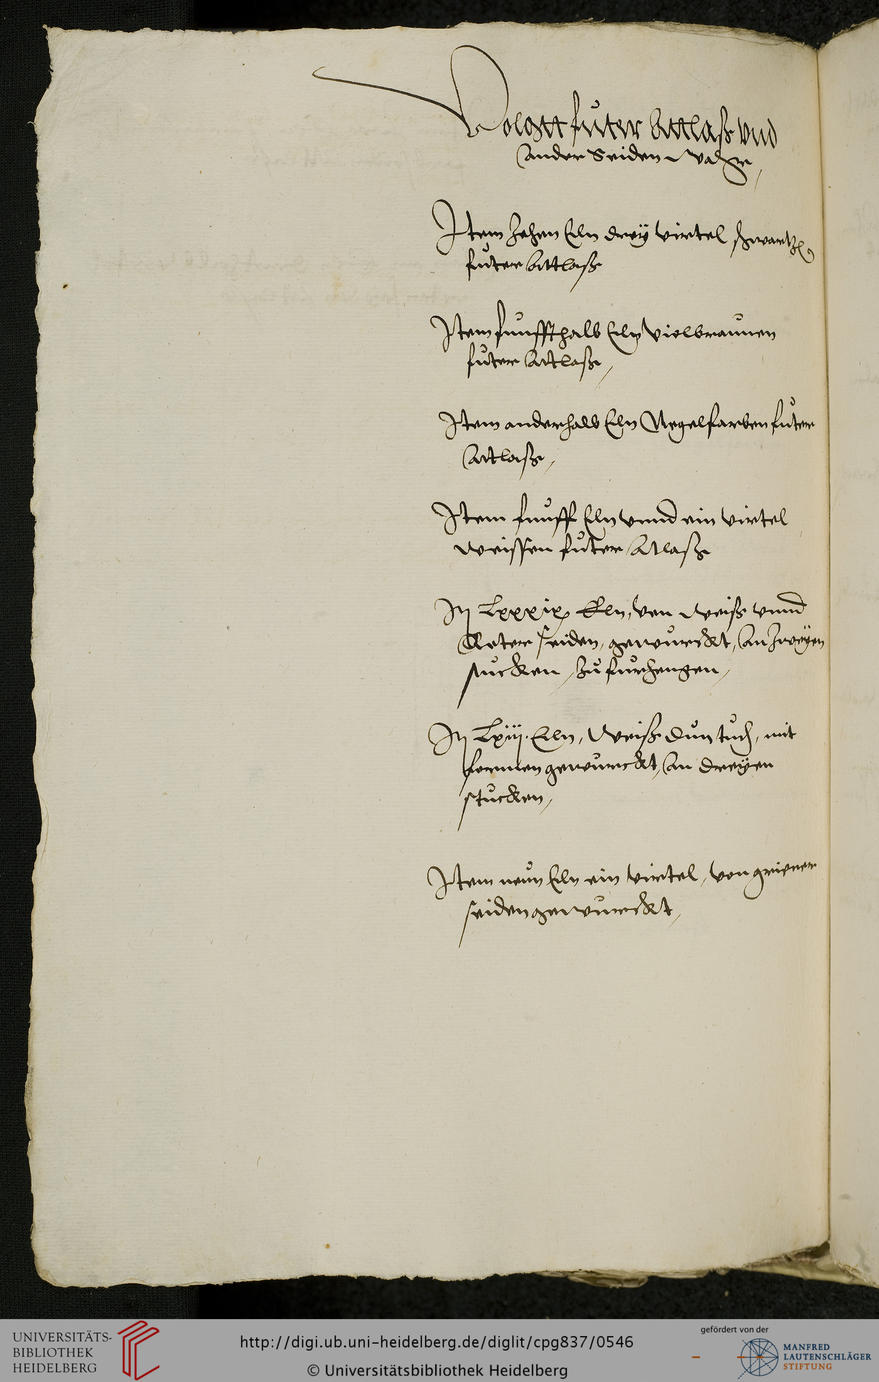 Volgtt futer Attlaß vnd
ander Seiden Wahr,
Item Zehen Eln drey virtel schwartzs
futer Attlaß
Item funffthalb Eln Violbraunen
futer Attlaß,
Item anderhalb Eln Negelfarben futer
Attlaß,
Item funff Eln vnnd ein virtel
weissen futer Atlaß
It Lxxxix Eln, von Weiß vnnd
Roter seiden, gewurckt, An Zweyen
stucken, Zu furhengen,
It Lxij. Eln, Weiß Dun tuch, mit
formen gewurckt, An Dreyen
stucken,
Item neun Eln ein virtel, von griener
seiden gewurckt,
UNIVERSITÄTS-
BIBLIOTHEK
HEIDELBERG
http://digi.ub.uni-heidelberg.de/diglit/cpg837/0546
© Universitätsbibliothek Heidelberg
gefördert von der
MANFRED
LAUTENSCHLÄGER
STIFTUNG